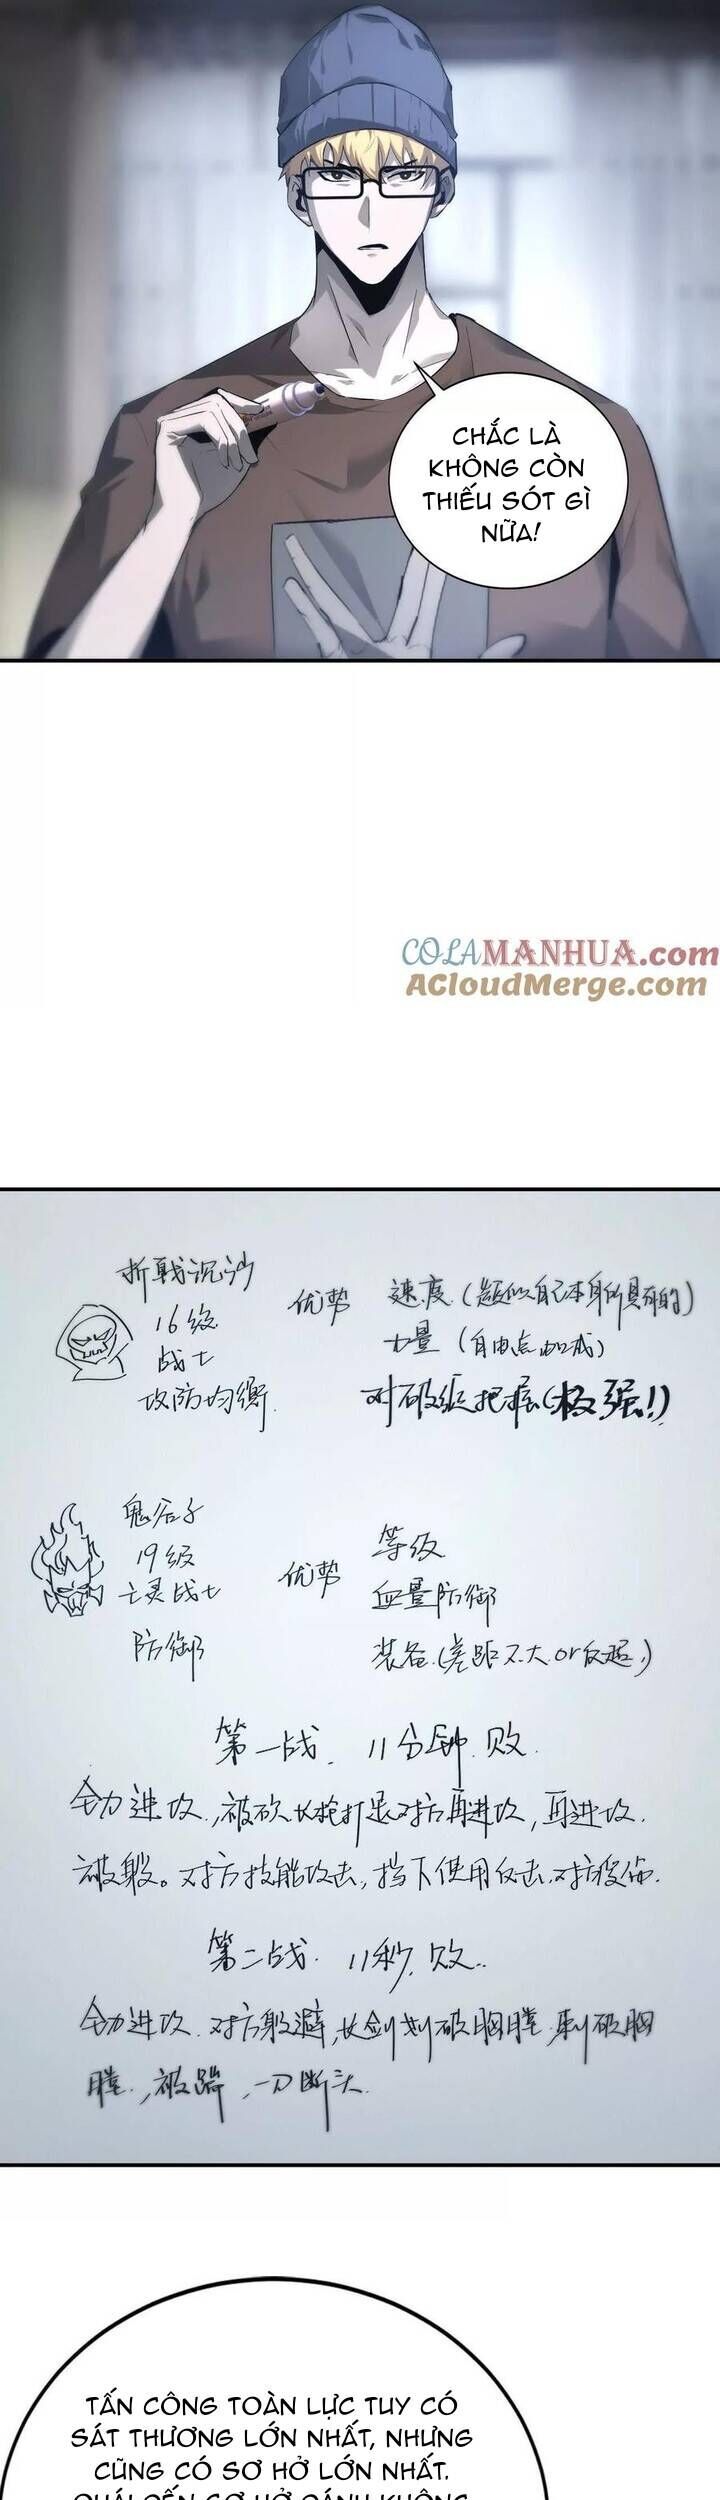 CHẮC LÀ
KHÔNG CÒN
THIẾU SÓT GÌ
NỮA!
COLAMANHUA.com
ACloudMerge.com
折戟沉沙
16级
战士
攻防均衡
优势
速度(类似自己本身所具有的)
力量(自由点加成)
对破绽把握(极强!)
鬼谷子
19级
亡灵战士
防御
优势
等级
血量防御
装备(差距不大or反超)
第一战. 11分钟. 败.
全力进攻,被砍长枪打退对方再进攻,再进攻.
被躲。对方技能攻击,挡下使用反击.对方
第二战. 11秒. 败..
全力进攻.对方躲避,长剑划破胸膛,刺破胸
膛.,被踹,一刀断头.
TẤN CÔNG TOÀN LỰC TUY CÓ
SÁT THƯƠNG LỚN NHẤT, NHƯNG
CŨNG CÓ SƠ HỞ LỚN NHẤT.